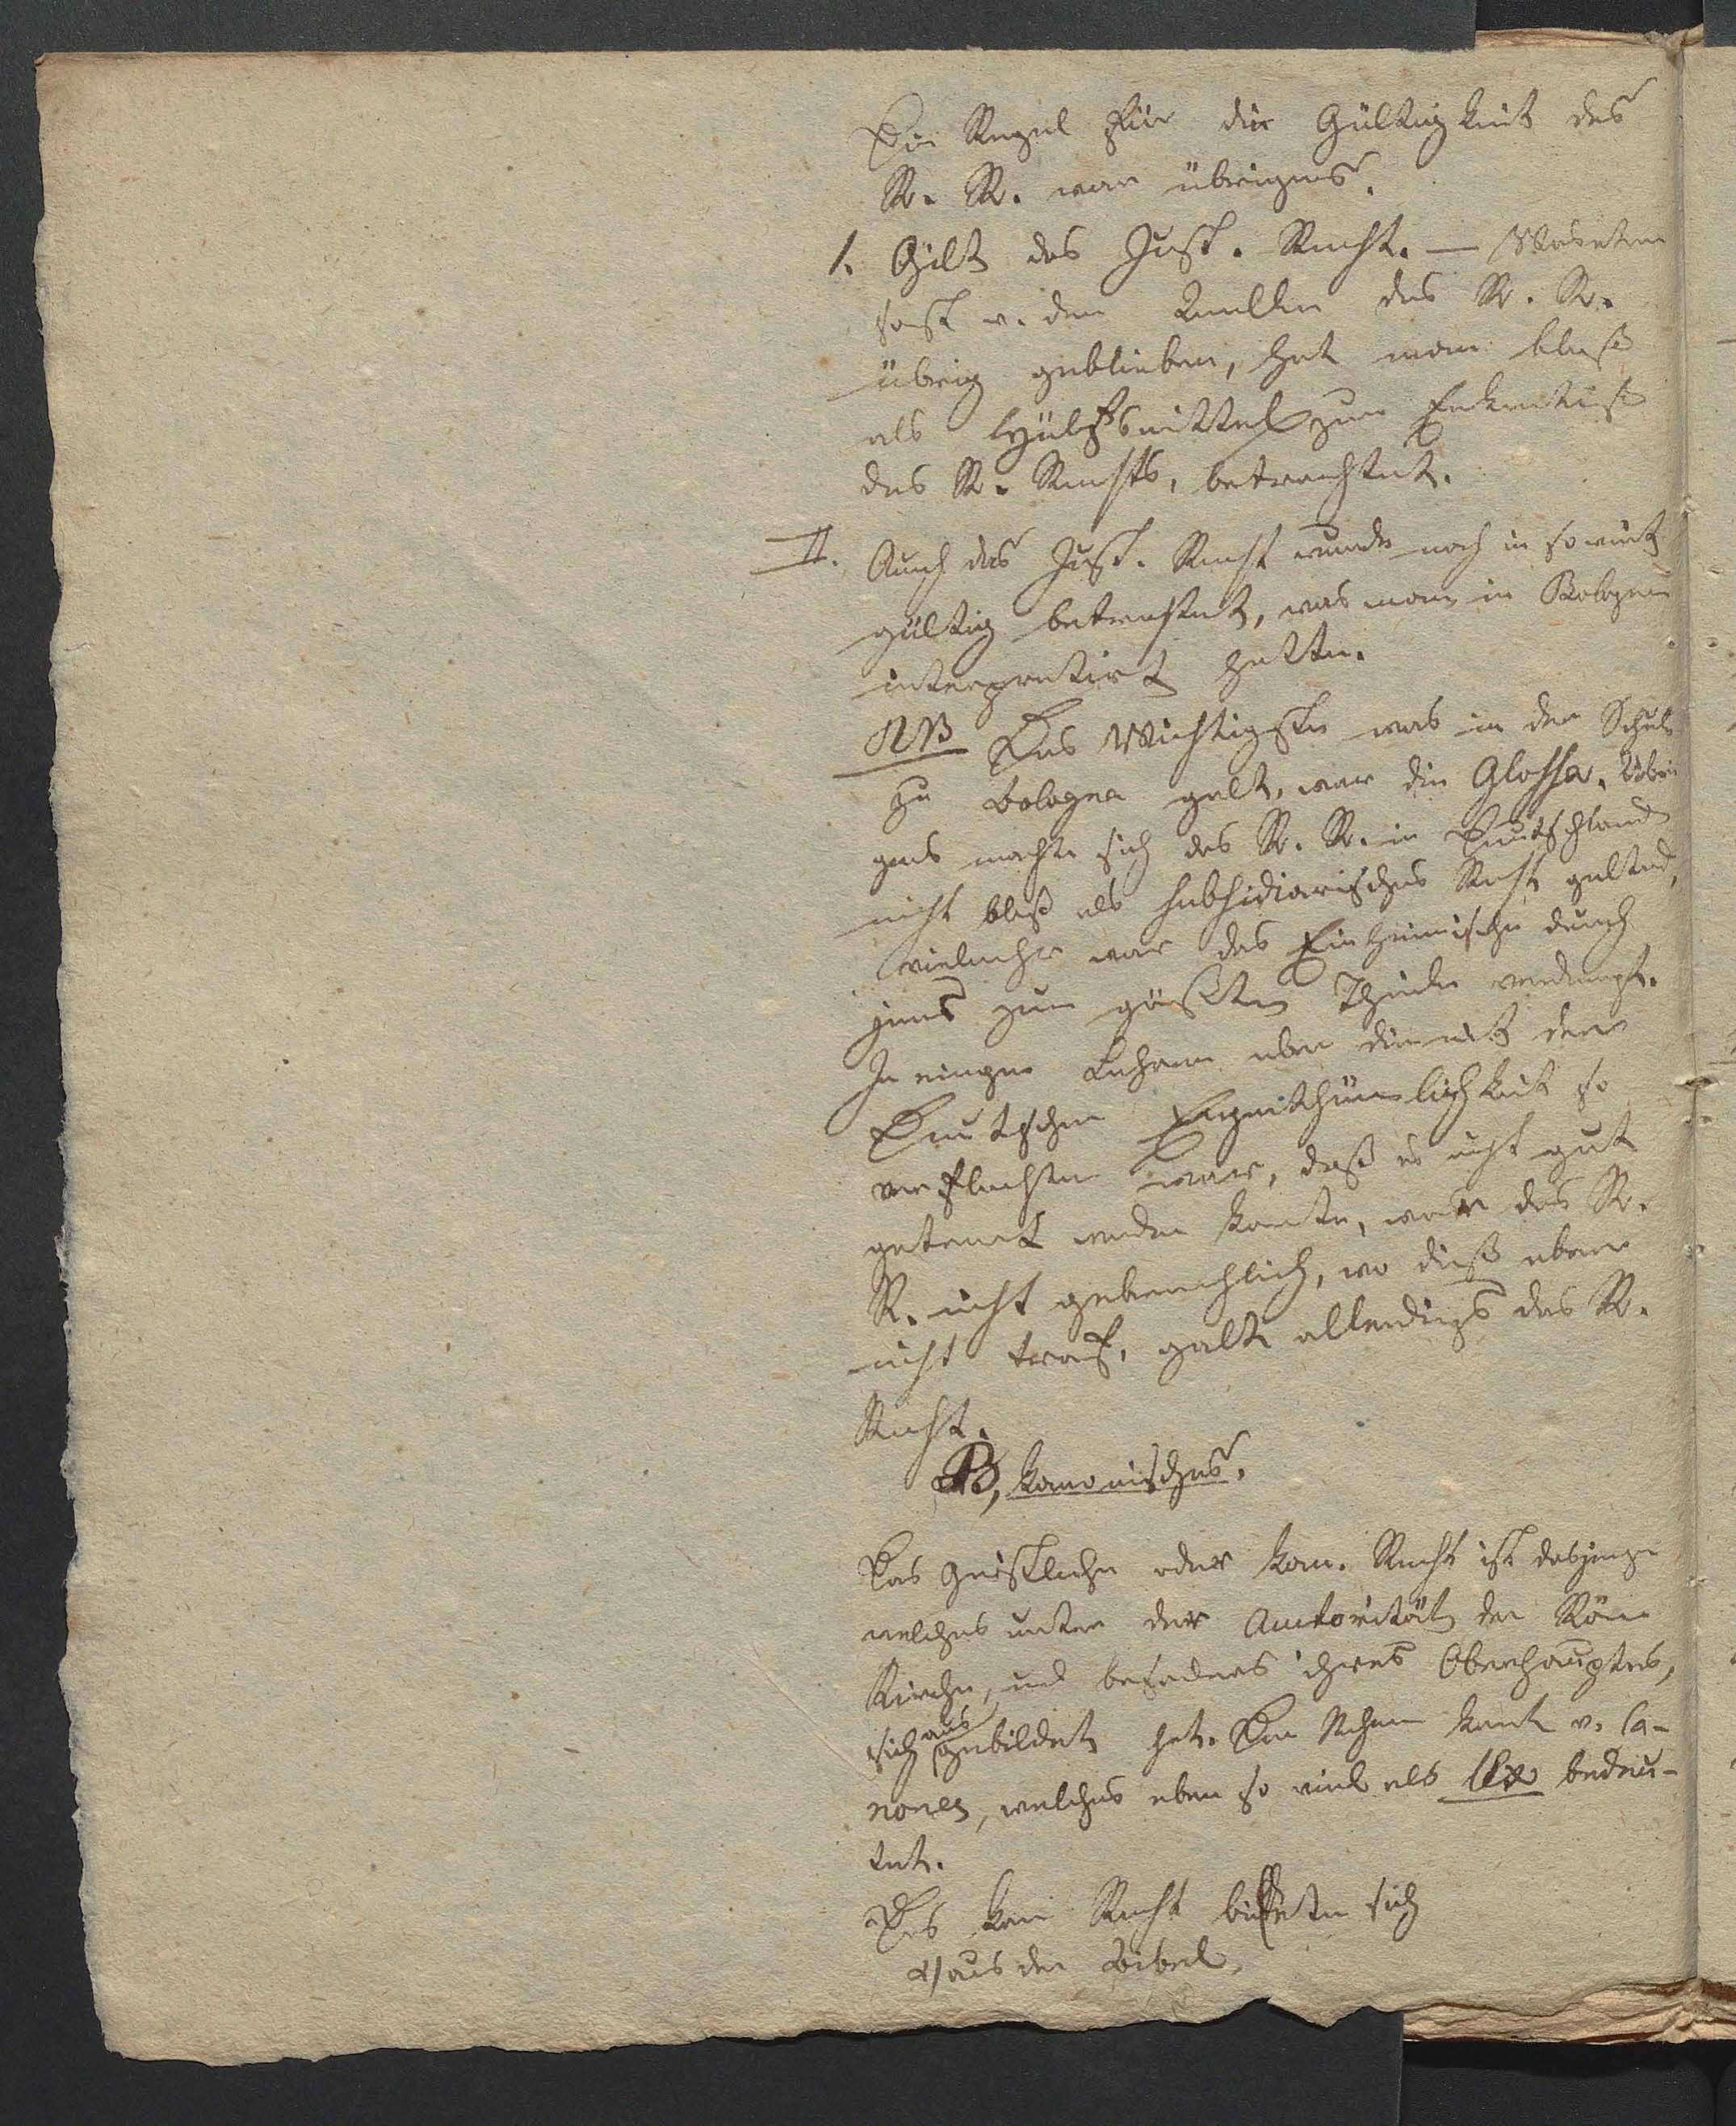 Die Regel für die Gültigkeit des
R. R. war übrigens.
1. Gilt das Just. Recht. — Was etwa
sonst v. den Quellen des R. R.
übrig geblieben, hat man bloß
als Hülfsmittel zur Erkentniß
des R. Rechts, betrachtet.
II. Auch das Just. Recht wurde noch in soweit
gültig betrachtet, was man in Bologna
interpretirt hatte.
NB Das Wichtigste was in der Schule
zu Bologna galt, war die Glossa. Übri
gens machte sich das R. R. in Deutschland
nicht bloß als subsidiarisches Recht geltend,
vielmehr war das Einheimische durch
jenes zum größten Theile verdrängt.
In einigen Lehren aber die mit der
Deutschen Eigenthümlichkeit so
verflochten war, daß es nicht gut
getrent werden konnte, war das R.
R. nicht gebrauchlich, wo dieß aber
nicht traf, galt allerdings das R.
Recht.
B, kanonisches.
Das Geistliche oder kan. Recht ist dasjenige
welches unter der Autorität der Röm
Kirche, und besonders ihres Oberhauptes,
sich ausgebildet hat. Der Nahme kömt v. Ca-
nones, welches eben so viel als lex bedeu-
tet.
Das kan Recht bildete sich
α) aus der Bibel.